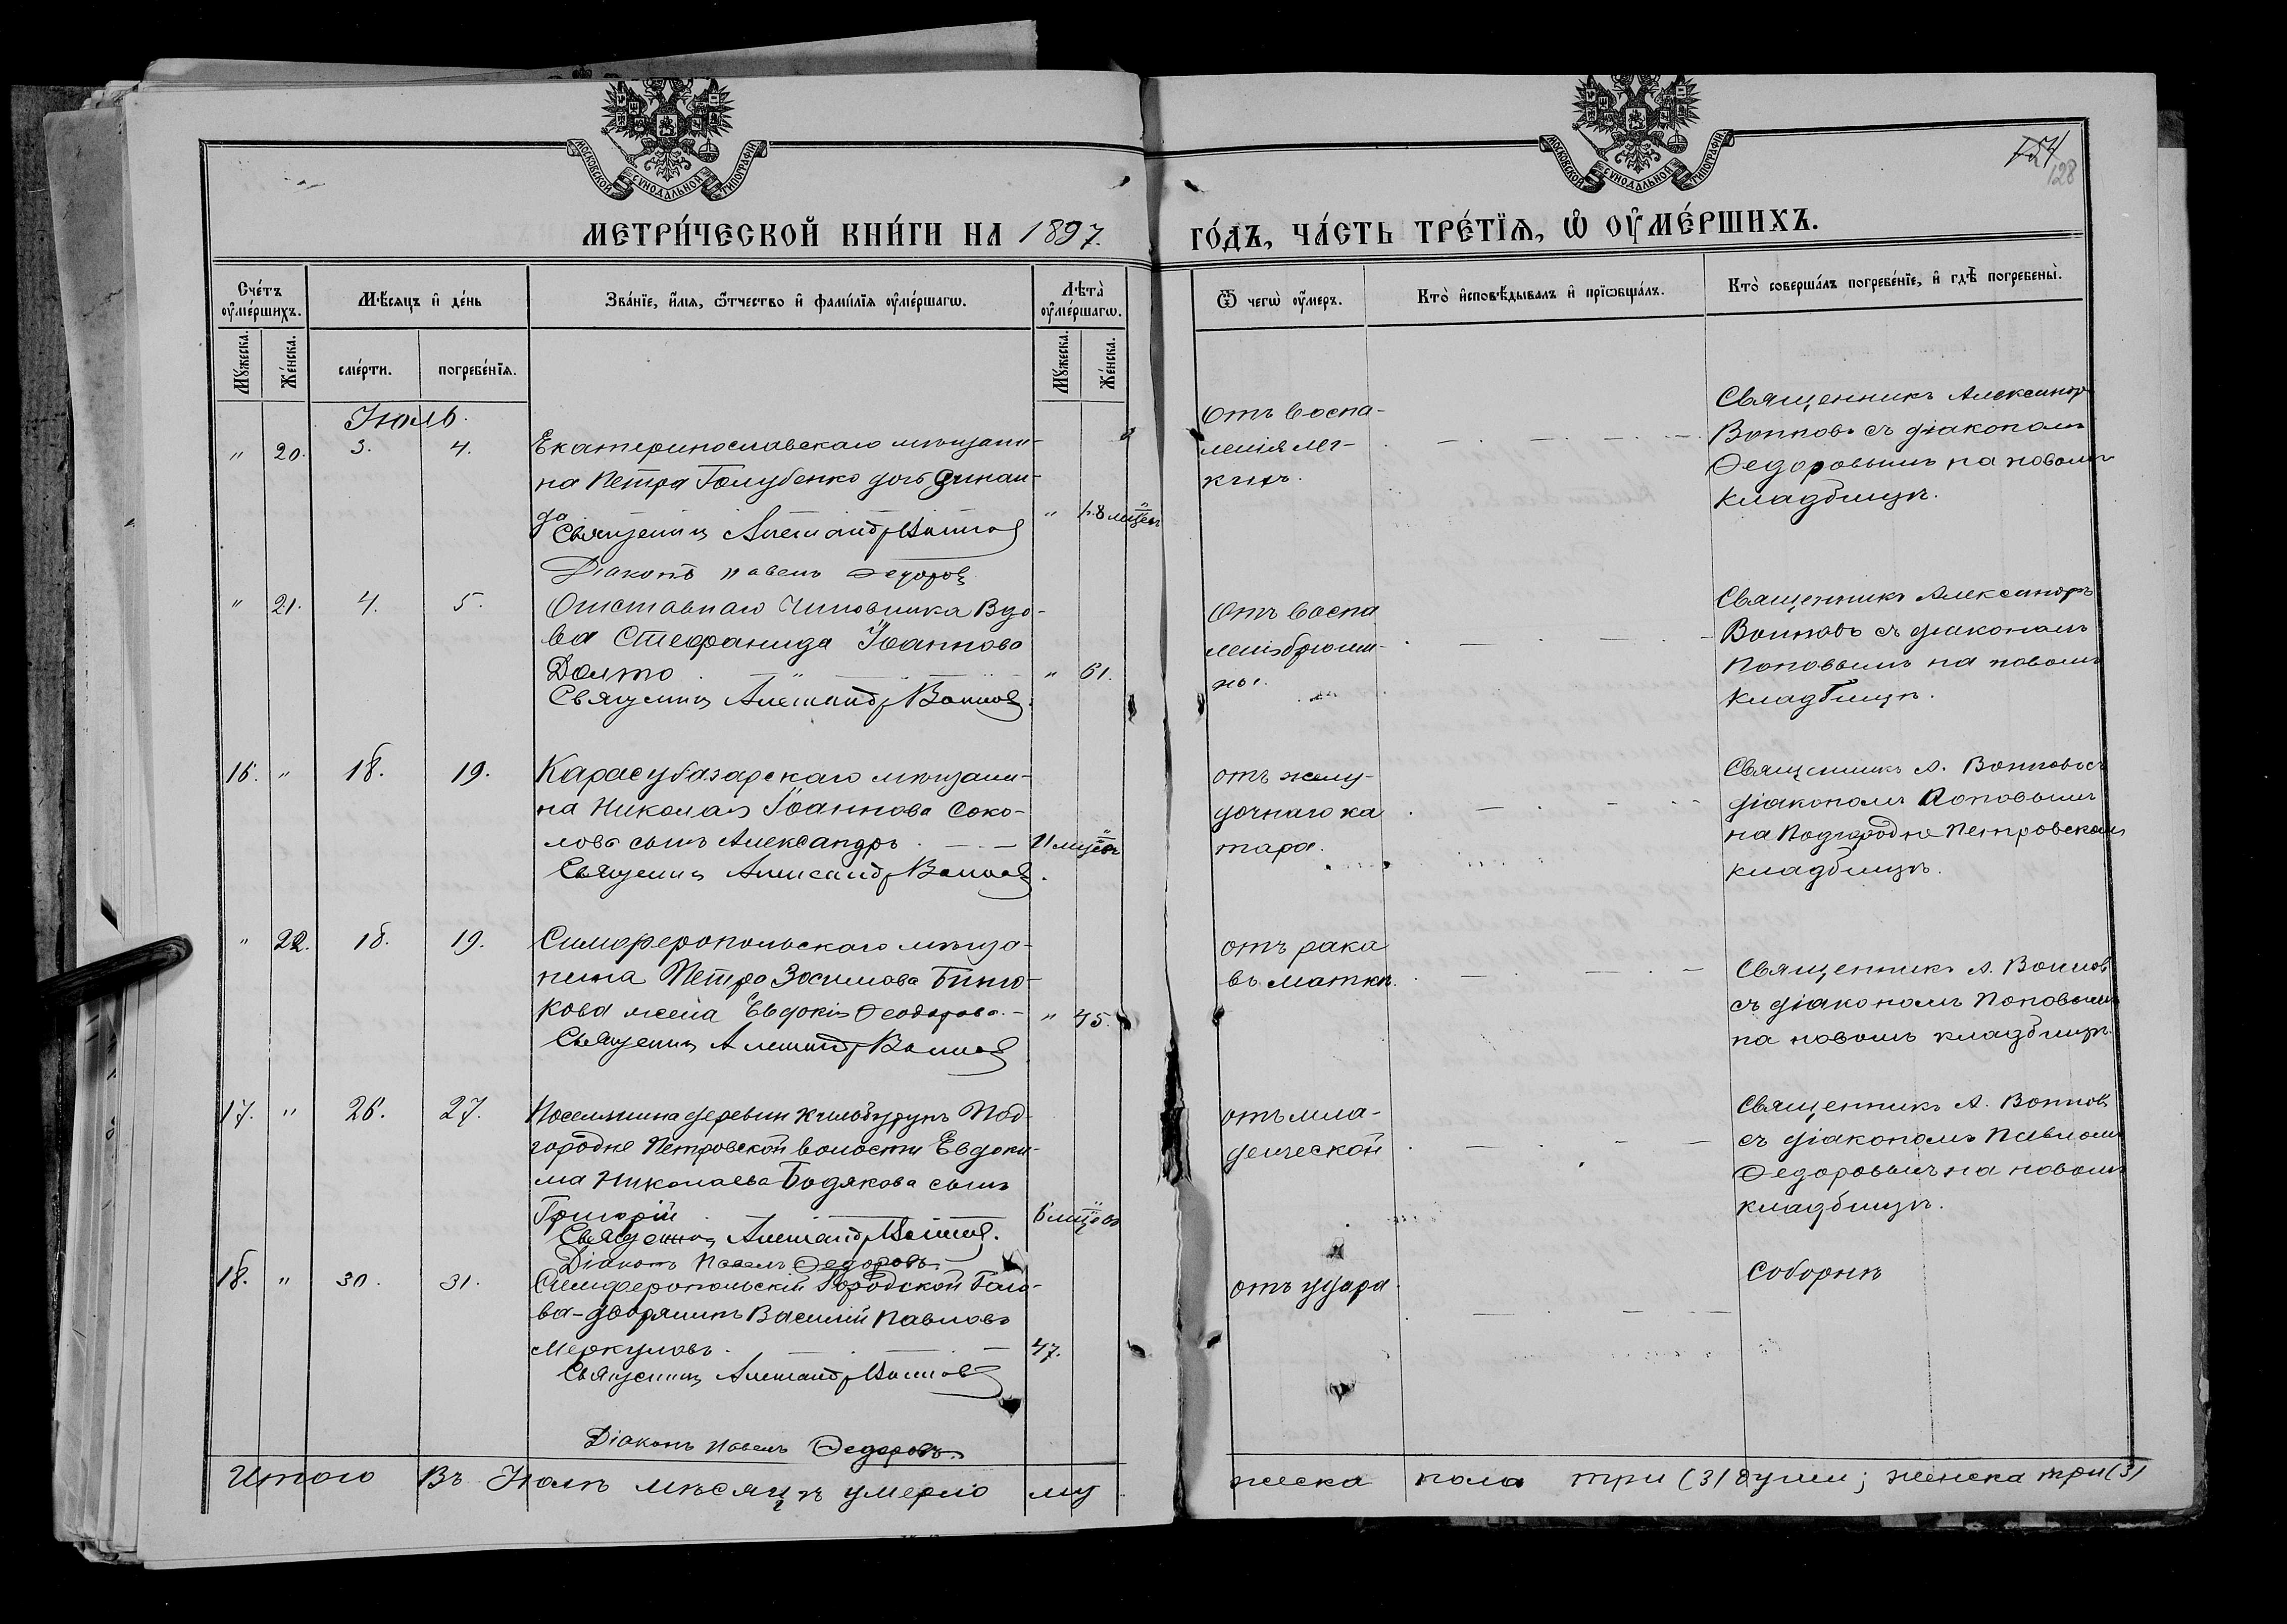 МОСКОВСКОЙ СУНОДАЛЬНОЙ ТИПОГРАФІИ
МОСКОВСКОЙ СУНОДАЛЬНОЙ ТИПОГРАФІИ
128
МЕТРИ́ЧЕСКОЙ КНИ́ГИ НА 1897. ГО́ДЪ, ЧА́СТЬ ТРЕ́ТЇѦ, Ѡ҆ ОУ҆МЕ́РШИХЪ.
Сче́тъ оу҆ме́ршихъ.
Мѣ́сяцъ и҆ де́нь
Зва́нїе, и҆́мѧ, ѻ҆́тчество и҆ фами́лїѧ оу҆ме́ршагѡ.
Лѣта̀ оу҆ме́ршагѡ.
Ѿ чегѡ̀ оу҆́меръ.
Кто̀ и҆сповѣ́дывалъ и҆ прїѡбща́лъ.
Кто̀ соверша́лъ погребе́нїе, и҆ гдѣ̀ погребены̀.
Мꙋ́жеска.
Же́нска.
сме́рти.
погребе́нїѧ.
Мꙋ́жеска.
Же́нска.
Іюль.
" 20. 3. 4.
Екатеринославскаго мѣщани-
на Петра Голубенко дочь Зинаи-
да
" 1. 8 мцевъ
Священникъ Александръ Воиновъ
Діаконъ Павелъ Федоровъ
Отъ воспа-
ленія лег-
кихъ.
Священникъ Александръ
Воиновъ съ діакономъ
Федоровымъ на новомъ
кладбищѣ.
" 21. 4. 5.
Отставнаго Чиновника Вдо-
ва Стефанида Іоаннова
Долто " 61.
Священникъ Александръ Воиновъ.
Отъ воспа
ленія брюши-
ны.
Священникъ Александръ
Воиновъ съ діакономъ
Поповымъ на новомъ
кладбищѣ.
16. " 18. 19.
Карасубазарскаго мѣщани-
на Николая Іоаннова Соко-
лова сынъ Александръ 11 мцевъ
Священникъ Александръ Воиновъ.
отъ желу-
дочнаго ка
тара.
Священникъ А. Воиновъ съ
діакономъ Поповымъ
на Подгородне Петровскомъ
кладбищѣ.
" 22. 18. 19.
Симферопольскаго мѣща-
нина Петра Зосимова Биню-
кова жена Евдокія Феодорова. " 45.
Священникъ Александръ Воиновъ
отъ рака
въ маткѣ.
Священникъ А. Воиновъ
съ діакономъ Поповымъ
на новомъ кладбищѣ.
17. " 26. 27.
Поселянина деревни Под-
городне Петровской волости Евдоки-
ма Николаева Бодякова сынъ
Григорій 6 мцовъ
Священникъ Александръ Воиновъ.
Діаконъ Павелъ Федоровъ
отъ мла-
денческой
Священникъ А. Воиновъ
съ діакономъ Павломъ
Федоровымъ на новомъ
кладбищѣ.
18. " 30. 31.
Симферопольскій Городской Голо-
ва-дворянинъ Василій Павловъ
Меркуловъ. 47.
Священникъ Александръ Воиновъ
Діаконъ Павелъ Федоровъ
отъ удара
Соборнѣ
Итого Въ Іюлѣ мѣсяцѣ умерло му жеска пола три (3) души; женска три (3)